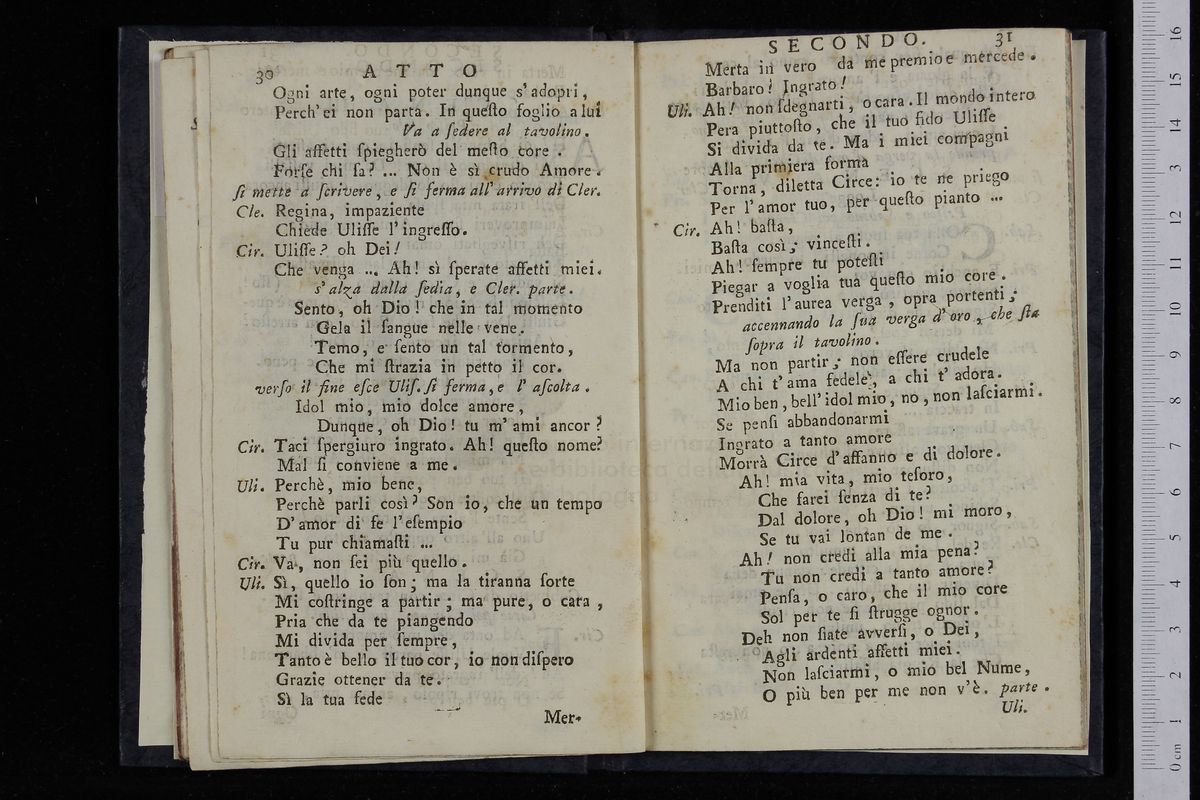 30 ATTO
Ogni arte, ogni poter dunque s'adopri,
Perch'ei non parta. In queſto foglio a lui
Va a ſedere al tavolino.
Gli affetti ſpiegherò del meſto core.
Forſe chi ſa? ... Non è sì crudo Amore.
ſi mette a ſcrivere, e ſi ferma all'arrivo di Cler.
Cle. Regina, impaziente
Chiede Uliſſe l'ingreſſo.
Cir. Uliſſe? oh Dei!
Che venga ... Ah! sì ſperate affetti miei.
s'alza dalla ſedia, e Cler. parte.
Sento, oh Dio! che in tal momento
Gela il ſangue nelle vene.
Temo, e ſento un tal tormento,
Che mi ſtrazia in petto il cor.
verſo il fine eſce Uliſ. ſi ferma, e l'aſcolta.
Idol mio, mio dolce amore,
Dunque, oh Dio! tu m'ami ancor?
Cir. Taci ſpergiuro ingrato. Ah! queſto nome?
Mal ſi conviene a me.
Uli. Perchè, mio bene,
Perchè parli così? Son io, che un tempo
D'amor di fe l'eſempio
Tu pur chiamaſti ...
Cir. Va, non ſei più quello.
Uli. Sì, quello io ſon; ma la tiranna ſorte
Mi coſtringe a partir; ma pure, o cara,
Pria che da te piangendo
Mi divida per ſempre,
Tanto è bello il tuo cor, io non diſpero
Grazie ottener da te.
Sì la tua fede
Mer-
SECONDO. 31
Merta in vero da me premio e mercede.
Barbaro! Ingrato!
Uli. Ah! non ſdegnarti, o cara. Il mondo intero
Pera piuttoſto, che il tuo fido Uliſſe
Si divida da te. Ma i miei compagni
Alla primiera forma
Torna, diletta Circe: io te ne priego
Per l'amor tuo, per queſto pianto ...
Cir. Ah! baſta,
Baſta così; vinceſti.
Ah! ſempre tu poteſti
Piegar a voglia tua queſto mio core.
Prenditi l'aurea verga, opra portenti;
accennando la ſua verga d'oro, che ſta
ſopra il tavolino.
Ma non partir; non eſſere crudele
A chi t'ama fedele, a chi t'adora.
Mio ben, bell'idol mio, no, non laſciarmi.
Se penſi abbandonarmi
Ingrato a tanto amore
Morrà Circe d'affanno e di dolore.
Ah! mia vita, mio teſoro,
Che farei ſenza di te?
Dal dolore, oh Dio! mi moro,
Se tu vai lontan de me.
Ah! non credi alla mia pena?
Tu non credi a tanto amore?
Penſa, o caro, che il mio core
Sol per te ſi ſtrugge ognor.
Deh non ſiate avverſi, o Dei,
Agli ardenti affetti miei.
Non laſciarmi, o mio bel Nume,
O più ben per me non v'è. parte.
Uli.
0 cm 1 2 3 4 5 6 7 8 9 10 11 12 13 14 15 16